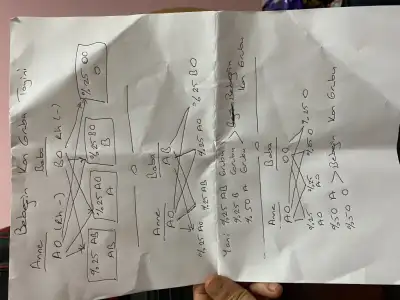 Bebeğin Kan Grubu Tayini
Anne Baba
AO (Rh -) BO Rh (-)
%25 AB %25 AO %25 BO %25 OO
AB A B O
Anne Baba
AO AB
%25 AO %25 AB %25 AO %25 BO
Yani %25 AB Grubu
%25 B Grubu > Bebeğin
%50 A Grubu Kan Grubu
Anne Baba
AO OO
%25 AO %25 AO %25 O %25 O
%50 A > Bebeğin Kan Grubu
%50 O